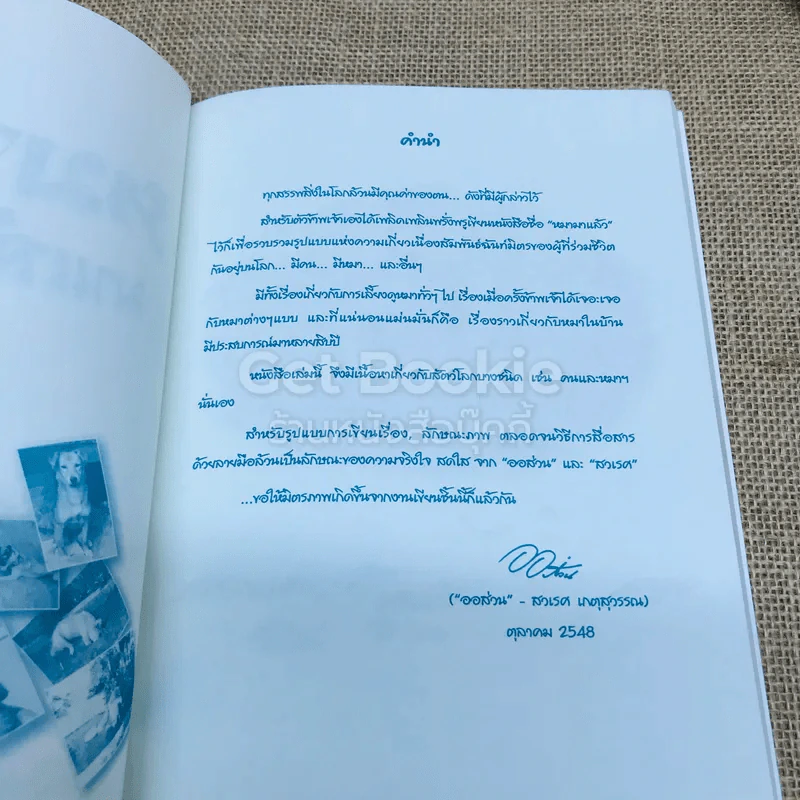 คำนำ
ทุกสรรพสิ่งในโลกล้วนมีคุณค่าของตน... ดังที่มีผู้กล่าวไว้
สำหรับตัวข้าพเจ้าเองได้เพลิดเพลินพรั่งพรูเขียนหนังสือชื่อ "หมามาแล้ว"
ไว้ก็เพื่อรวบรวมรูปแบบแห่งความเกี่ยวเนื่องสัมพันธ์ฉันท์มิตรของผู้ที่ร่วมชีวิต
กันอยู่บนโลก... มีคน... มีหมา... และอื่นๆ
มีทั้งเรื่องเกี่ยวกับการเลี้ยงดูหมาทั่วๆ ไป เรื่องเมื่อครั้งข้าพเจ้าได้เจอะเจอ
กับหมาต่างๆแบบ และที่แน่นอนแม่นมั่นก็คือ เรื่องราวเกี่ยวกับหมาในบ้าน
มีประสบการณ์มาหลายสิบปี
Get Bookie
หนังสือเล่มนี้ จึงมีเนื้อหาเกี่ยวกับสัตว์โลกบางชนิด เช่น คนและหมาฯ
นั่นเอง
ร้านหนังสือบุ๊คกี้
สำหรับรูปแบบการเขียนเรื่อง, ลักษณะภาพ ตลอดจนวิธีการสื่อสาร
ด้วยลายมือล้วนเป็นลักษณะของความจริงใจ สดใส จาก "ออส่วน" และ "สวเรศ"
...ขอให้มิตรภาพเกิดขึ้นจากงานเขียนชิ้นนี้ก็แล้วกัน
ออส่วน
("ออส่วน" - สวเรศ เกตุสุวรรณ)
ตุลาคม 2548